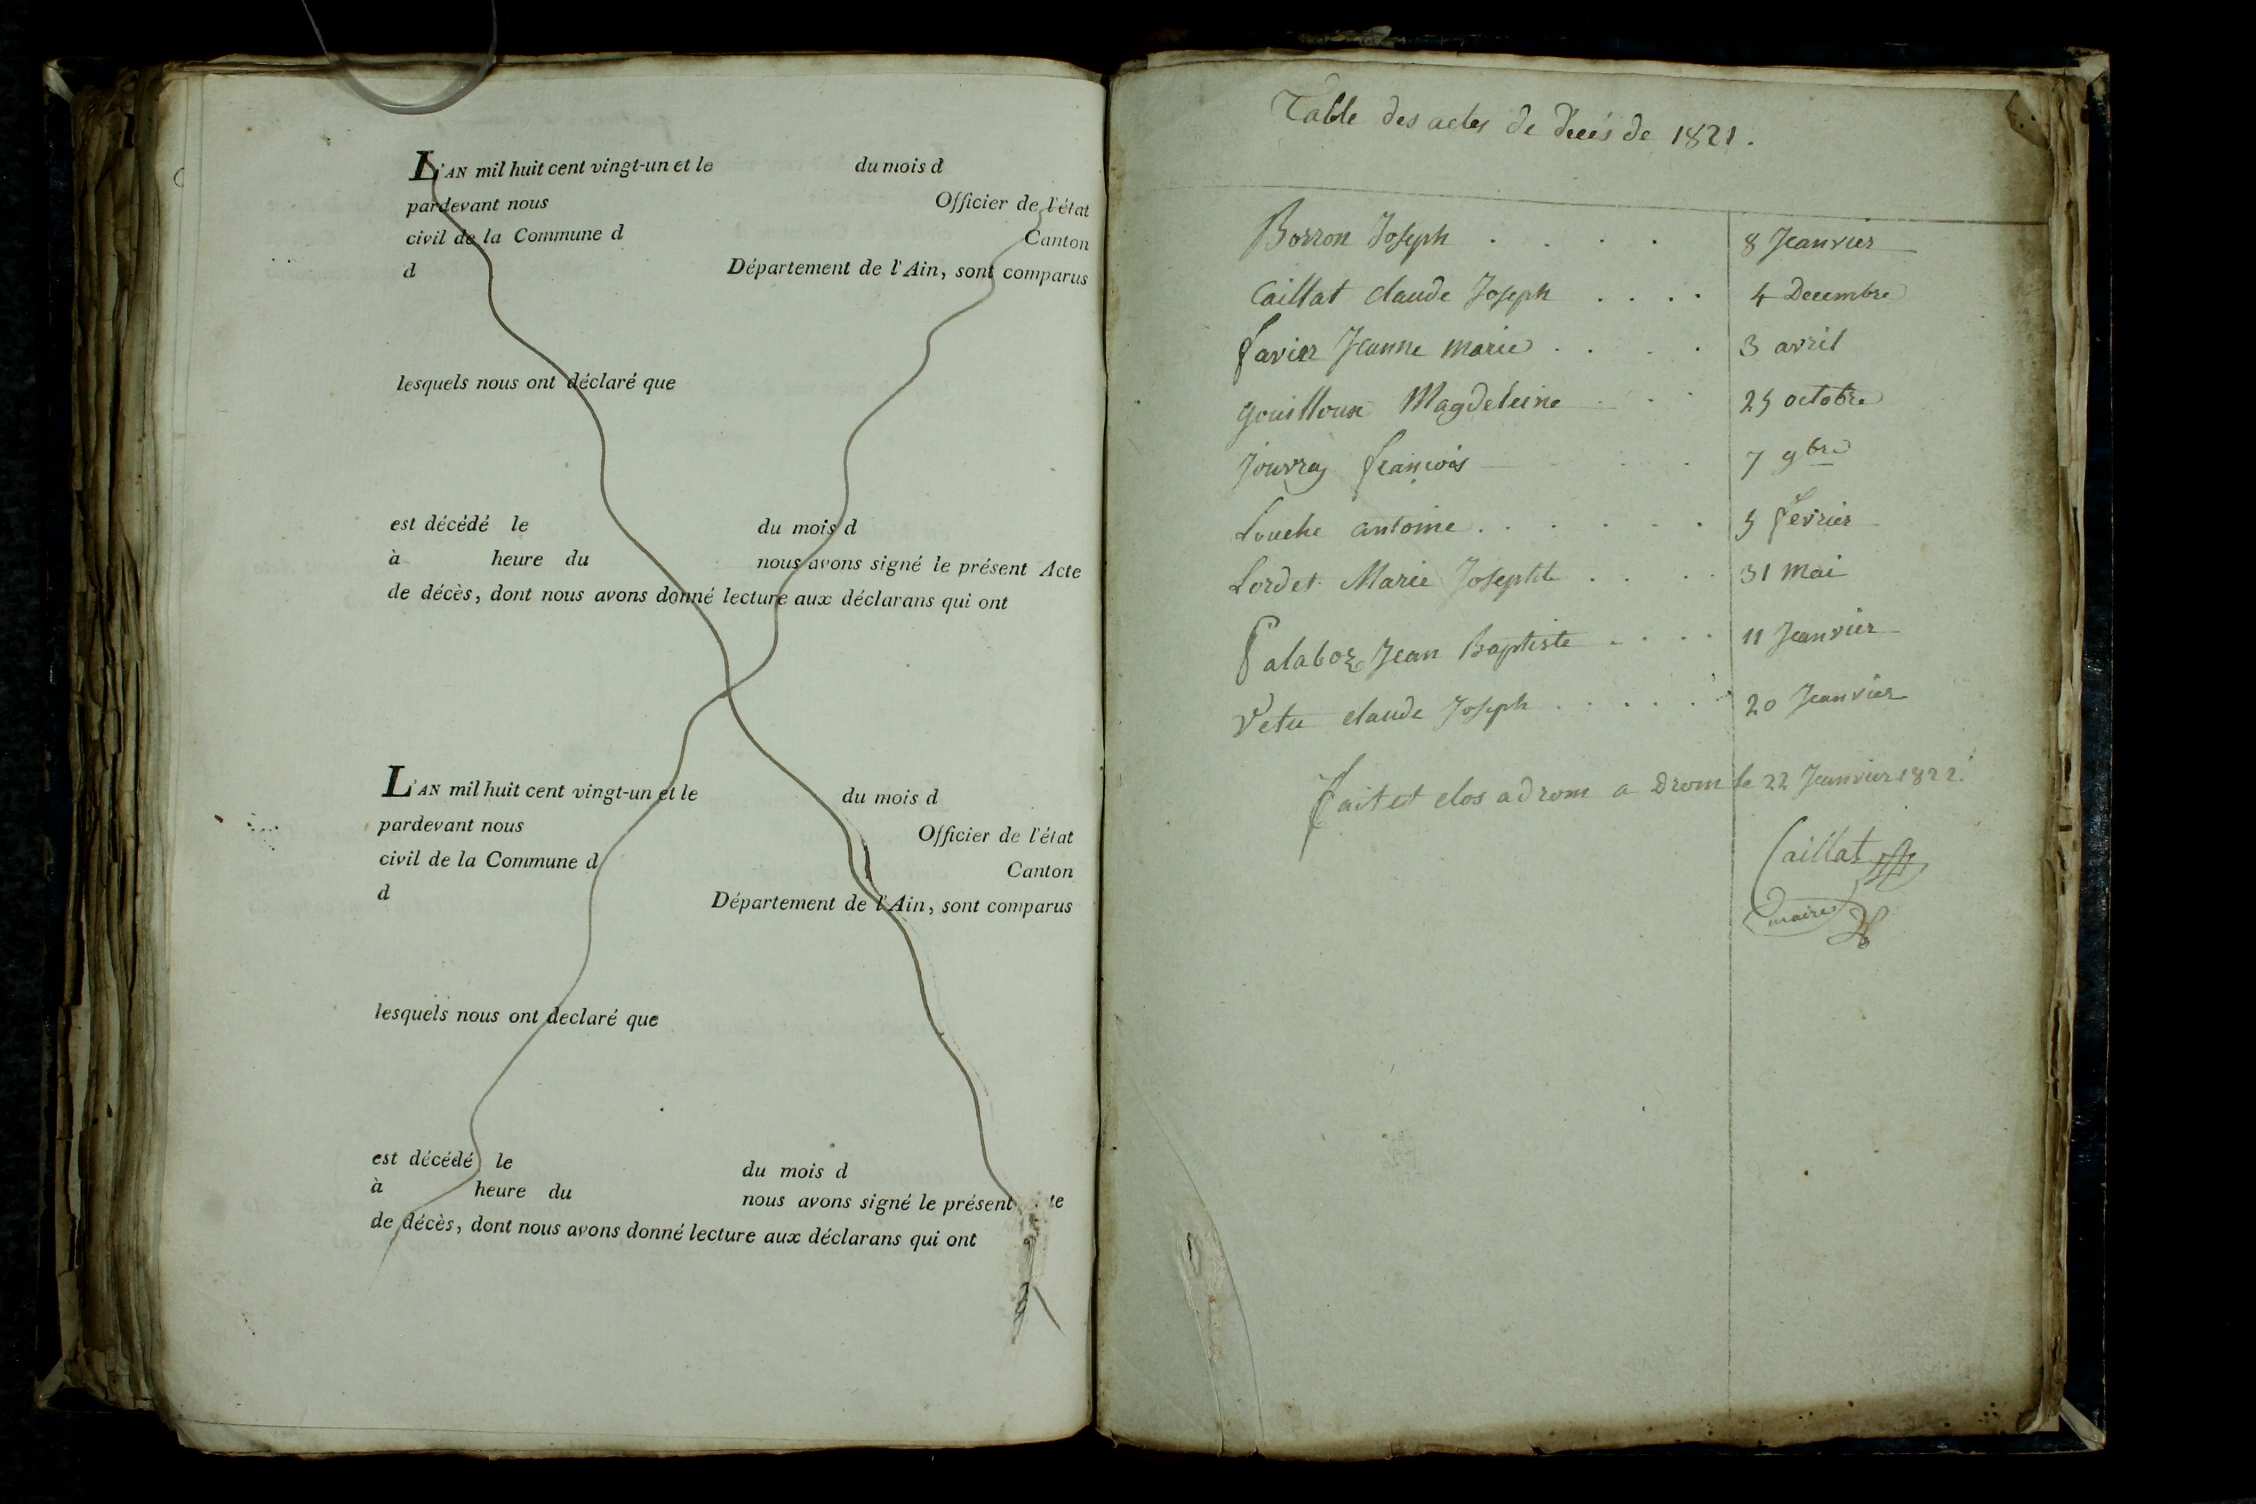 L'AN mil huit cent vingt-un et le du mois d
pardevant nous Officier de l'état
civil de la Commune d Canton
d Département de l'Ain, sont comparus
lesquels nous ont déclaré que
est décédé le du mois d
à heure du nous avons signé le présent Acte
de décès, dont nous avons donné lecture aux déclarans qui ont
L'AN mil huit cent vingt-un et le du mois d
pardevant nous Officier de l'état
civil de la Commune d Canton
d Département de l'Ain, sont comparus
lesquels nous ont declaré que
est décédé le du mois d
à heure du nous avons signé le présent te
de décès, dont nous avons donné lecture aux déclarans qui ont
Table des actes de Décés de 1821.
Borron Joseph . . . . 8 Jeanvier
Caillat claude Joseph . . . . 4 Decembre
favier Jeanne marie . . . . 3 avril
gouilloux Magdeleine . . . 25 octobre
Jouvray françois . . . 7 9bre
Louche antoine . . . . . . 5 fevrier
Lordet Marie Josephte . . . . 31 mai
Palaboz Jean Baptiste . . . . 11 Jeanvier
Vetu claude Joseph . . . . . . 20 Jeanvier
fait et clos a drom a Drom le 22 Jeanvier 1822.
Caillat
maire